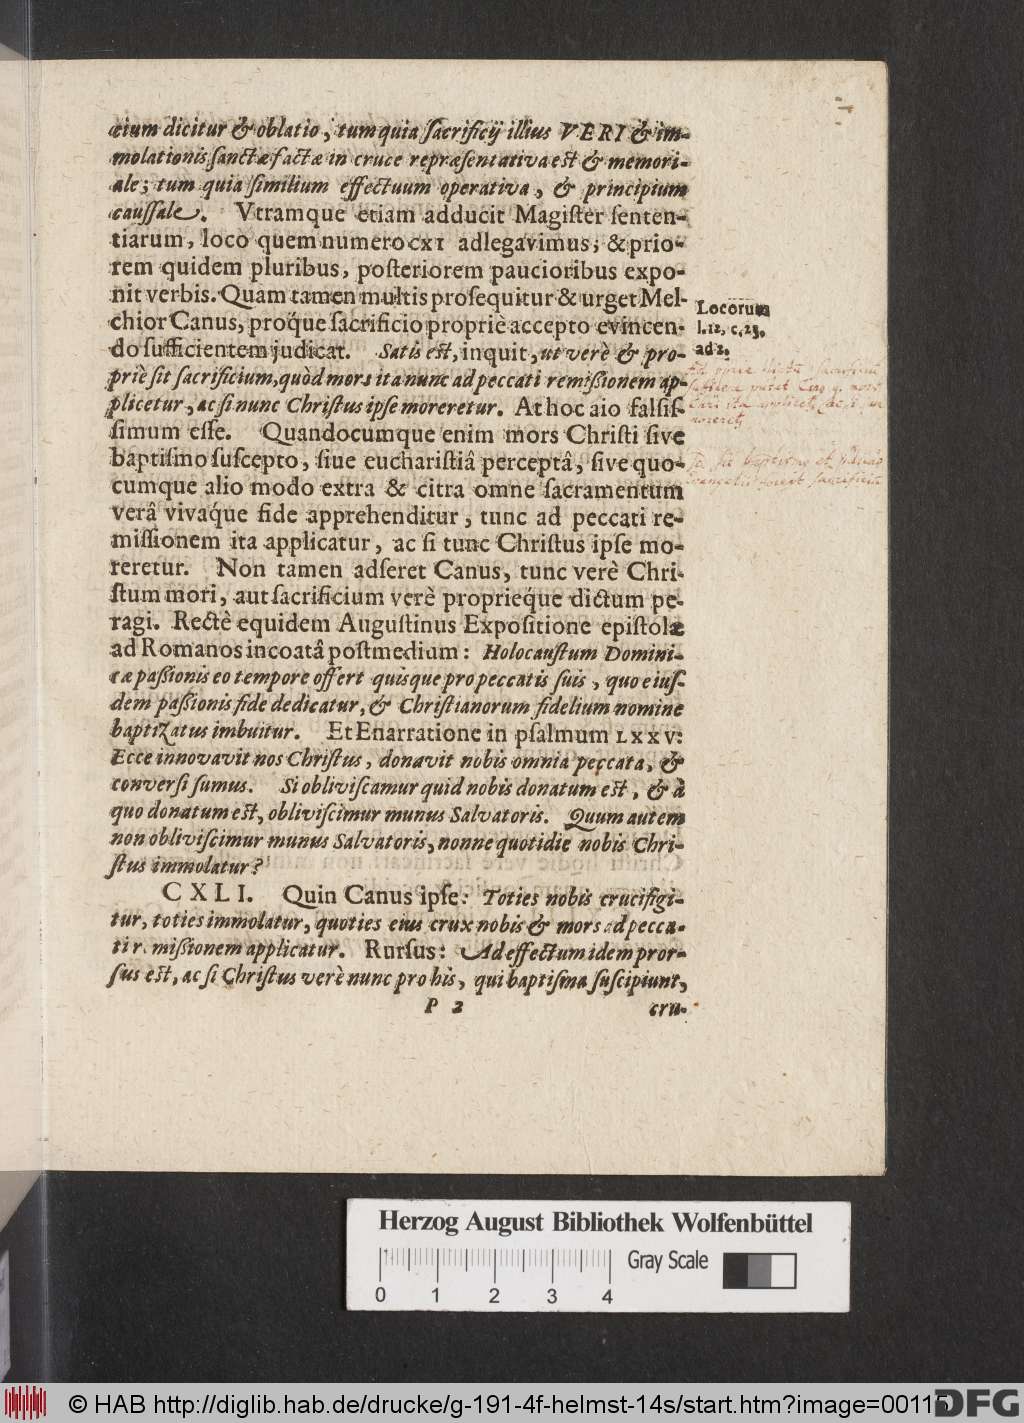 cium dicitur & oblatio, tum quia ſacrificij illius VERI & im-
molationis ſanctæ factæ in cruce repræſentativa eſt & memori-
ale; tum quia ſimilium effectuum operativa, & principium
cauſſale. Vtramque etiam adducit Magiſter ſenten-
tiarum, loco quem numero CXI adlegavimus; & prio-
rem quidem pluribus, poſteriorem paucioribus expo-
nit verbis. Quam tamen multis proſequitur & urget Mel-
chior Canus, proq́ue ſacrificio propriè accepto evincen-
do ſufficientem judicat. Satis eſt, inquit, ut verè & pro-
priè ſit ſacrificium, quòd mors ita nunc ad peccati remißionem ap-
plicetur, ac ſi nunc Chriſtus ipſe moreretur. At hoc aio falſiſ-
ſimum eſſe. Quandocumque enim mors Chriſti ſive
baptiſmo ſuſcepto, ſiue euchariſtiâ perceptâ, ſive quo-
cumque alio modo extra & citra omne ſacramentum
verâ vivaq́ue fide apprehenditur, tunc ad peccati re-
miſſionem ita applicatur, ac ſi tunc Chriſtus ipſe mo-
reretur. Non tamen adſeret Canus, tunc verè Chri-
ſtum mori, aut ſacrificium verè proprieq́ue dictum pe-
ragi. Rectè equidem Auguſtinus Expoſitione epiſtolæ
ad Romanos incoatâ poſt medium: Holocauſtum Domini-
cæ paßionis eo tempore offert quisque pro peccatis ſuis, quo eiuſ-
dem paßionis fide dedicatur, & Chriſtianorum fidelium nomine
baptizatus imbuitur. Et Enarratione in pſalmum LXXV:
Ecce innovavit nos Chriſtus, donavit nobis omnia peccata, &
converſi ſumus. Si obliviſcamur quid nobis donatum eſt, & à
quo donatum eſt, obliviſcimur munus Salvatoris. Quum autem
non obliviſcimur munus Salvatoris, nonne quotidie nobis Chri-
ſtus immolatur?
CXLI. Quin Canus ipſe: Toties nobis crucifigi-
tur, toties immolatur, quoties eius crux nobis & mors ad pecca-
ti r. mißionem applicatur. Rurſus: Ad effectum idem pror-
ſus eſt, ac ſi Chriſtus verè nunc pro his, qui baptiſma ſuſcipiunt,
P 2 cru-
Locorum
l. 12, c. 23.
ad 2.
Herzog August Bibliothek Wolfenbüttel
Gray Scale
0 1 2 3 4
© HAB http://diglib.hab.de/drucke/g-191-4f-helmst-14s/start.htm?image=00115
DFG